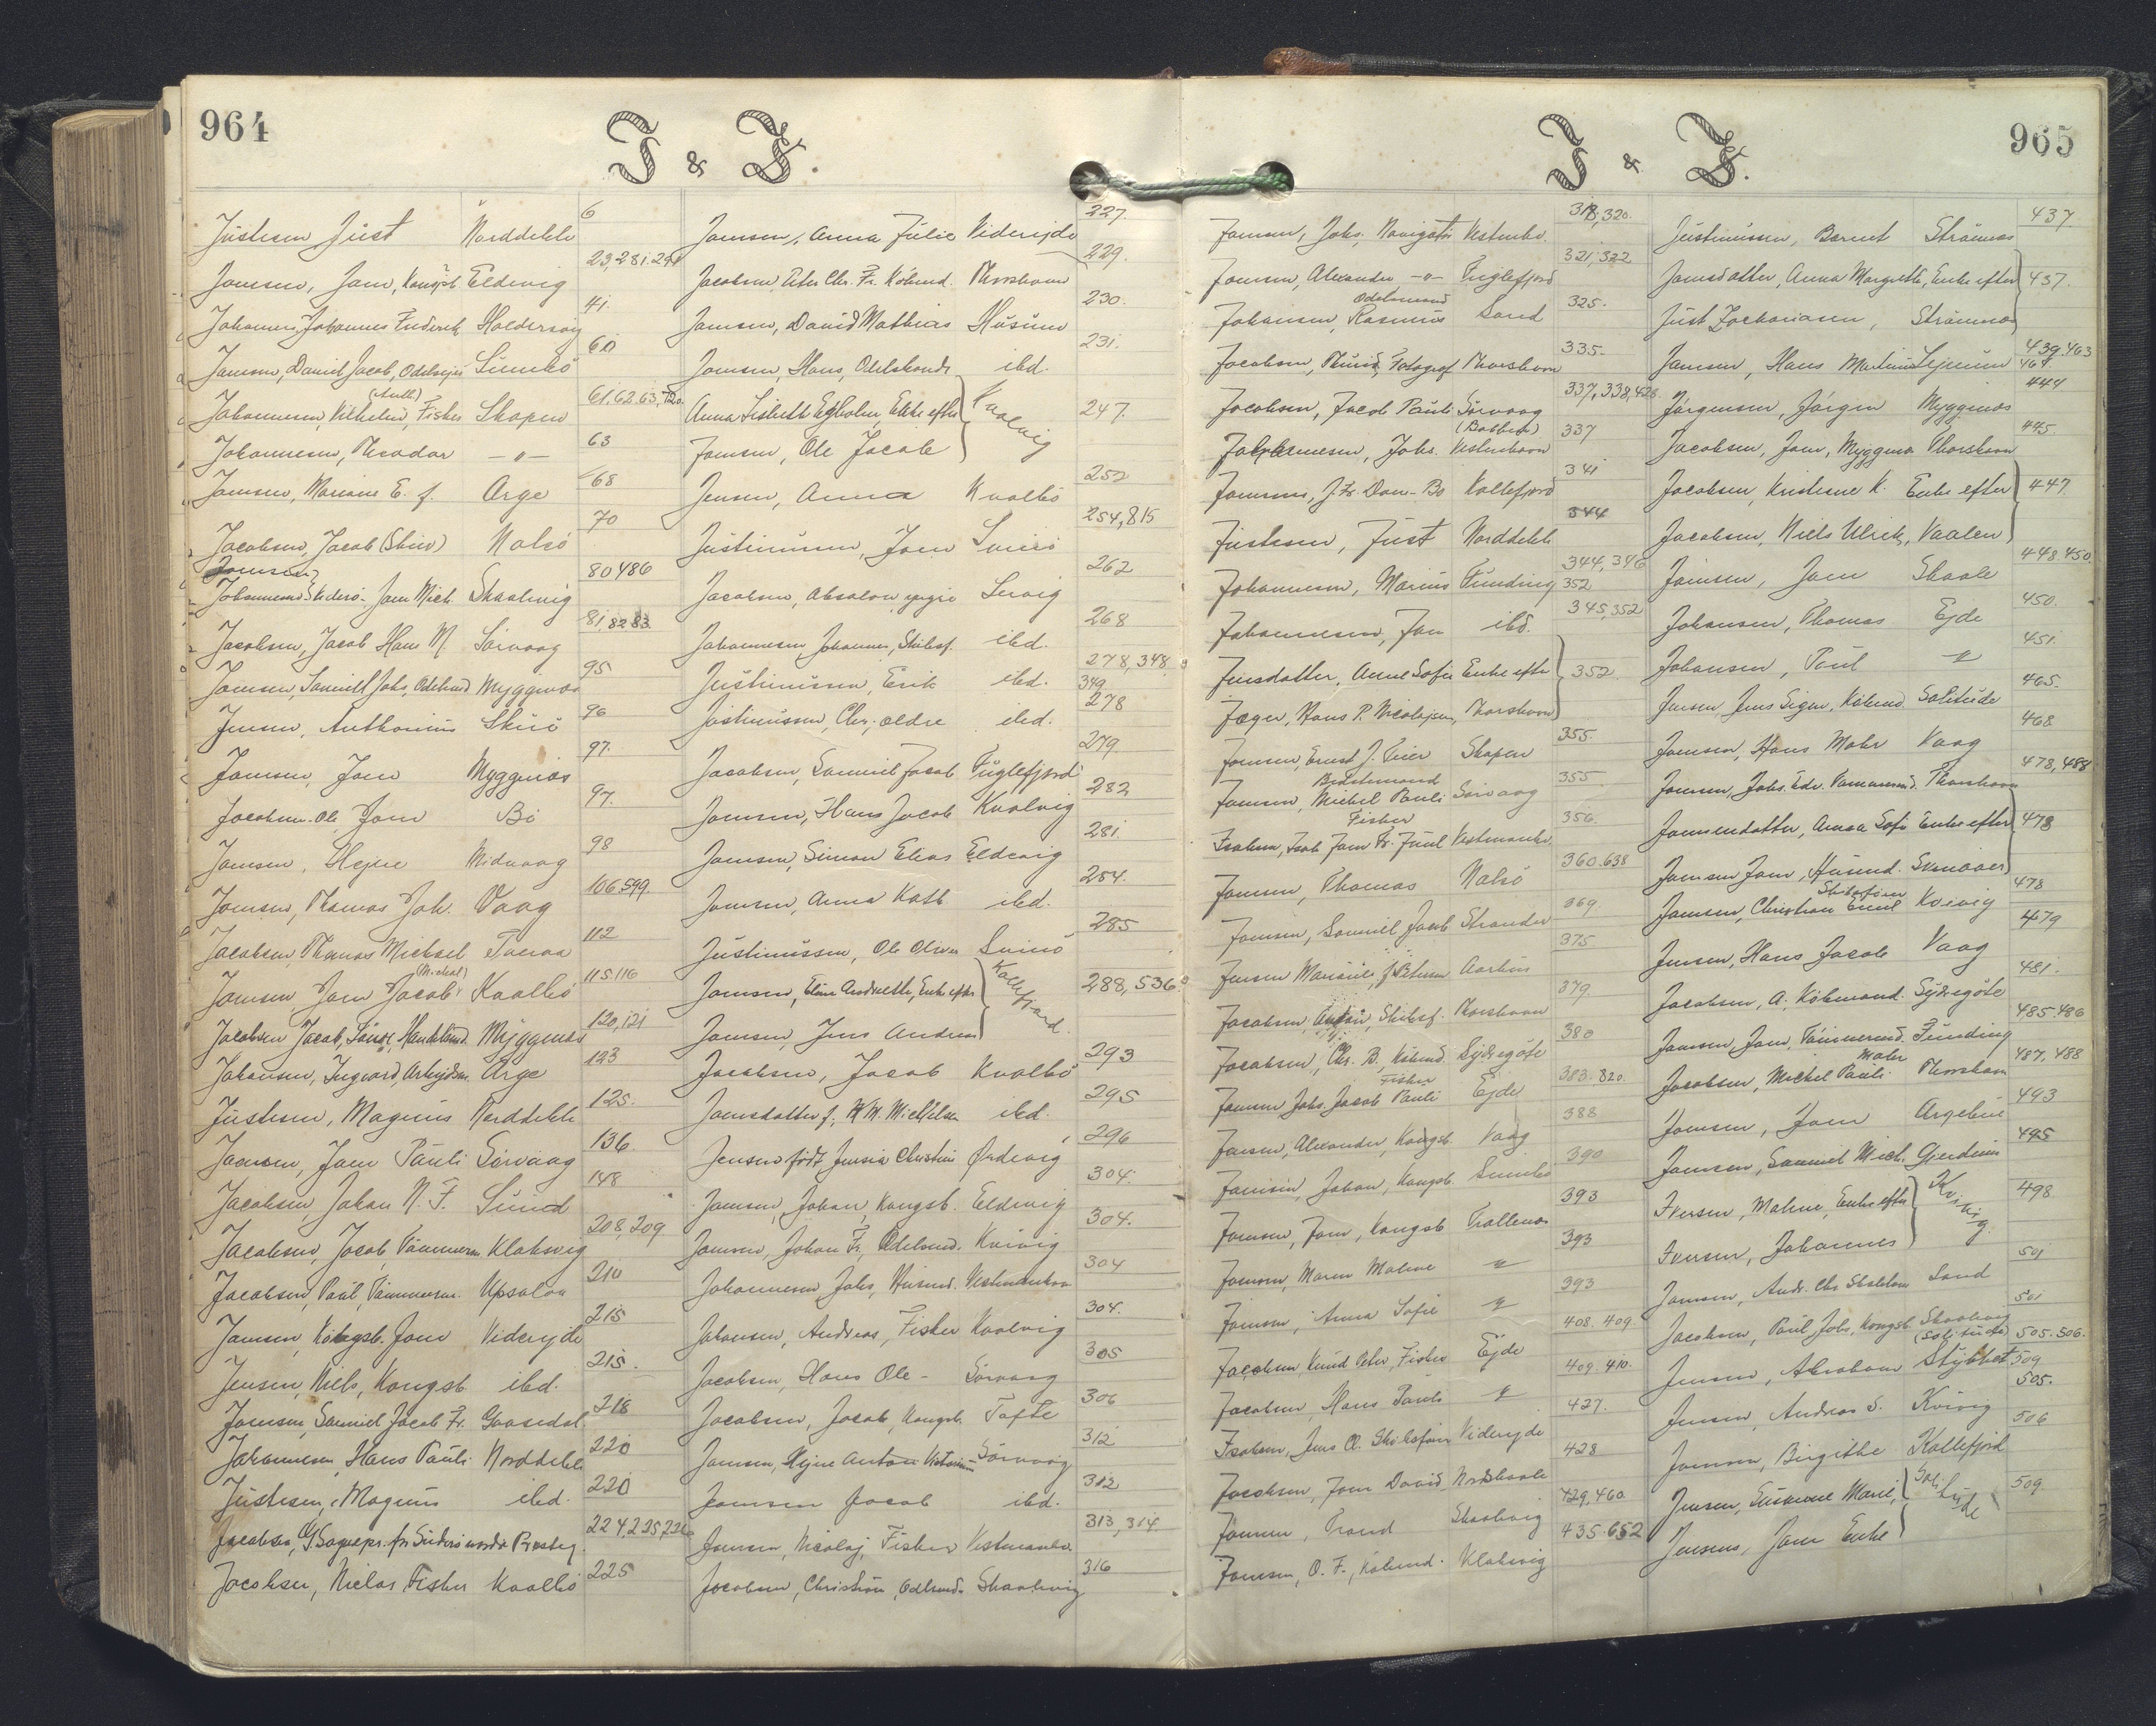 964
I & J.
Justesen Just Norddeble 6
Joensen, Joen, Kongsb. Eldevig 23, 281. 291
Johannes, Johannes Frederik Haldersvig 41.
Joensen, Daniel Jacob, Odelsejer Sumbö 60
Johannesen, Vilhelm, Fisker Skopen 61, 62, 63, 720.
Johannesen, Theodor —"— 63
Joensen, Marius E. f. Arge 68
Jacobsen, Jacob (Skuo) Nolsö 70
Joensen
Johannesen Joen Mich. Skaalevig 80 486
Jacobsen, Jacob Hans M. Sörvaag 81, 82 83.
Joensen, Samuel Johs, Odelsmd Myggenæs 95
Jensen, Anthonius Skuö 96
Joensen, Joen Myggenæs 97.
Jacobsen, Ole Joen Bö 97.
Joensen, Hejne Midvaag 98
Joensen, Thomas Joh. Vaag 106 599.
Jacobsen, Thomas Michael Tveraa 112
Joensen, Joen Jacob (Michal) Kvalbö 115 116
Jacobsen Jacob, Handelsmd. Myggenæs 120, 121
Johansen, Ingvard, Arbejdsm. Arge 123
Justesen, Magnus Norddeble 125.
Joensen, Joen Pauli Sörvaag 136.
Jacobsen, Johan N. F. Sund 148
Jacobsen, Jacob, Tömmerm. Klaksvig 208, 209
Jacobsen, Paul, Tömmerm. Upsalon 210
Joensen, Kongsb. Joen Viderejde 215
Jensen, Niels, Kongsb. ibd. 215.
Joensen, Samuel Jacob Fr. Gaasedal 218
Johannesen, Hans Pauli Norddeble 220
Justesen, Magnus ibd. 220
Jacobsen, Sognepr. for Suderö nordre Præsteg. 224, 225, 726
Jacobsen, Niclas Fisker Kvalbö 225
Joensen, Anna Julie Viderejde 227.
Jacobsen, Peter Chr. Fr. Köbmd. Thorshavn 229.
Joensen, David Mathias Husum 230.
Joensen, Hans, Odelsbonde ibd. 231.
Anna Lisbeth Egholm, Enke efter Kvalvig 247.
Joensen, Ole Jacob
Jensen, Anna Kvalbö 252
Justinussen, Joen Svinö 254, 815
Jacobsen, Absalon yngre Lervig 262
Johannesen Johannes, Skibsf. ibd. 268
Justinussen, Erik ibd. 278, 348, 349
Jastinussen, Chr. ældre ibd. 278
Jacobsen, Samuel Jacob Fuglefjord 279.
Joensen, Hans Jacob Kvalvig 282
Joensen, Simon Elias Eldevig 281.
Joensen, Anna Kath ibd. 284.
Justinussen, Ole Oliver Svinö 285
Joensen, Eline Andreatte, Enke efter Kollefjord. 288, 536.
Joensen, Jens Andreas
Jacobsen, Jacob Kvalbö 293
Joensdatter f. ibd. 295
Jensen født Jensia Christine Ørdevig 296
Joensen, Johan, Kongsb. Eldevig 304.
Joensen, Johan Fr. Odelsmd. Kvivig 304.
Johannesen Johs, Husmd. Vestmanhavn 304
Johansen, Andreas, Fisker Kvalvig 304.
Jacobsen, Hans Ole - Sörvaag 305
Jacobsen, Jacob, Kongsb. Tofte 306
Joensen, Hejne Anton Sörvaag 312
Joensen Jacob ibd. 312
Joensen, Nicolaj, Fisker Vestmanhvn. 313, 314
Jacobsen, Christian, Odelsmd. Skaalevig 316
I & J.
965
Joensen, Johs. Navigatör Vestmhv. 318, 320.
Joensen, Alexander —"— Fuglefjord 321, 322
Johansen, Rasmus Odelsmand Sand 325.
Jacobsen, Fotograf Thorshavn 335.
Jacobsen, Jacob Pauli Sörvaag 337, 338, 428
Johannesen, Johs. Vestmhavn 337
Joensen, J. Fr. Kollefjord 341
Justesen, Just Norddeble 344
Johannesen, Marius Funding 344, 346 352
Johannesen, Jon ibd. 345, 352
Jensdatter, Anne Sofie Enke efter 352.
Jæger, Hans P. Nicolajsen, Thorshavn
Joensen, Ernst J. Peier Skopen 355.
Joensen, Michel Pauli Sörvaag 355
Isaksen, Isak Joen Fr. Juul Fisker Vestmanhv. 356.
Joensen, Thomas Nolsö 360. 638
Joensen, Samuel Jacob Strander 369.
Jensen Mariane f. Petersen Aarhus 375
Jacobsen, Anton, Skibsf. Thorshavn 379
Jacobsen, Chr. B, Köbmd. Sydregöte 380
Joensen Johs. Jacob Pauli Fisker Ejde 383. 820.
Joensen, Alexander, Kongsb. Vaag 388
Joensen, Johan, Kongsb. Sumbö 390
Joensen, Joen, Kongsb Trollenæs 393
Joensen, Maren Malene " 393
Joensen, Anna Sofie " 393
Jacobsen Knud Peter, Fisker Ejde 408. 409
Jacobsen, Hans Pauli " 409. 410.
Isaksen, Jens O. Skibsförer Viderejde 427.
Jacobsen, Joen David, Nordskaale 428
Joensen, Trond Skaalevig 429, 460
Joensen, O. F., Købmd. Klaksvig 435. 652
Justinussen, Berent Strömnæs 437
Joensdatter, Anna Margrethe, Enke efter 437.
Just Zachariasen, Strömnæs
Joensen, Hans Martinus Lejnum 439. 463 464
Jörgensen, Jörgen Myggenæs 444
Jacobsen, Joen, Myggenæs Thorshavn 445.
Jacobsen, Kristine K. Enke efter 447
Jacobsen, Niels Ulrik, Vaalen
Joensen, Joen Skaale 448. 450
Johansen, Thomas Ejde 450.
Johansen, Paul " 451.
Jensen, Jens Sigen, Köbmd. Solitude 465.
Joensen, Hans Mohr Vaag 468
Joensen, Johs. Edv. Tømmermd. Thorshavn 478, 488
Joensendatter, Anna Sofie Enke efter 478
Joensen Joen, Husmd. Svinaaer
Joensen, Christian Emil Skibsförer Kvivig 478
Jensen, Hans Jacob Vaag 479
Jacobsen, A. Köbmand. Sydregöte 481.
Joensen, Joen, Tömmermd. Funding 485. 486
Jacobsen, Michel Pauli Mohr Thorshavn 487. 488
Joensen, Joen Argebui 493
Joensen, Samuel Mich. Gjerdum 495
Iversen, Malene, Enke efter Kvivig. 498
Iversen, Johannes
Joensen, Andr. Chr. Sand 501
Jacobsen, Paul Johs, Kongsb. Skaalevig 501
Jensen, Abraham Stykket (Solitude) 505. 506. 509
Jensen, Andreas S. Kvivig 505.
Joensen, Birgithe Kollefjord 506
Jensen, Susanne Marie, Solitude 509
Jensens, Joen Enke